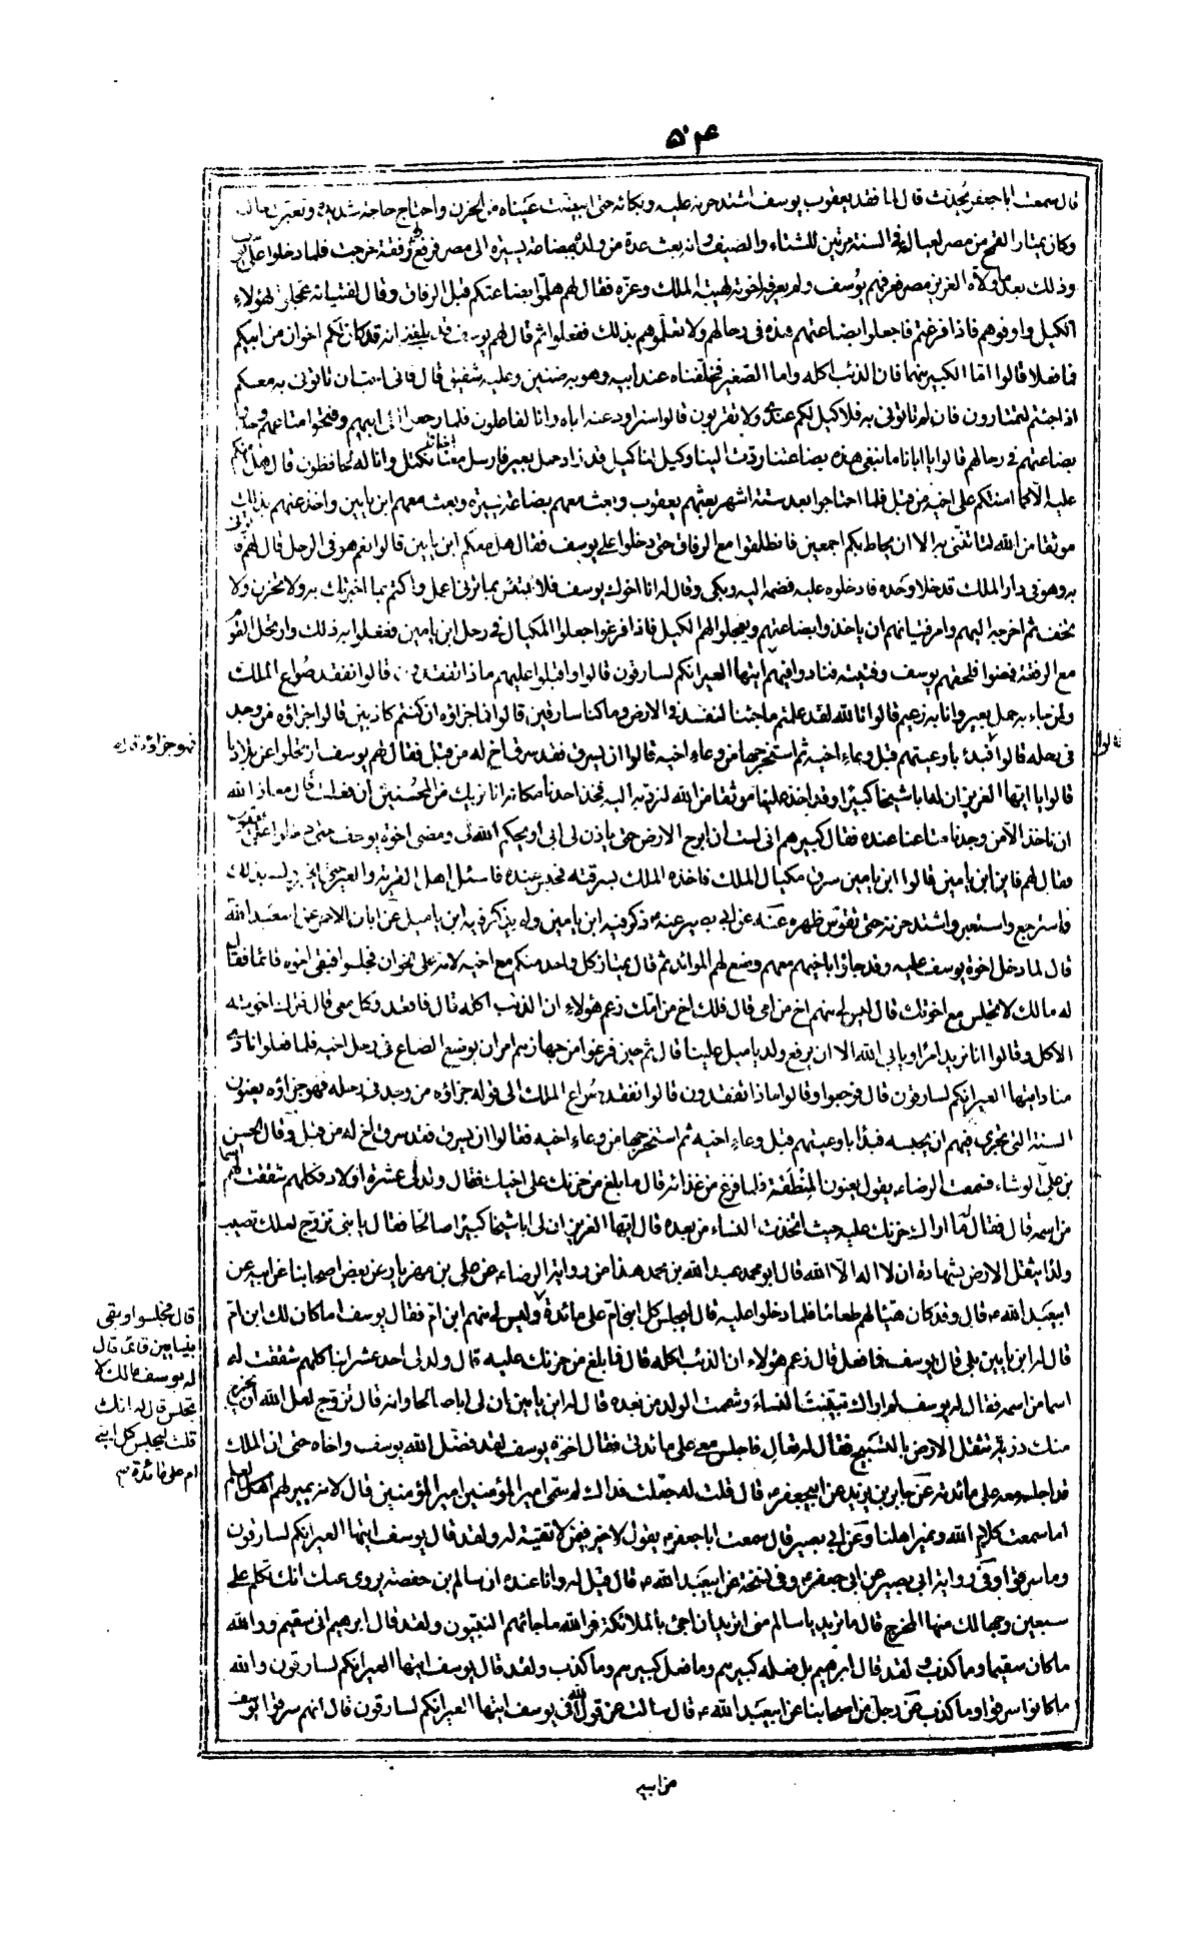 ۵۰۴
قال سمعت ابا جعفر يحدث قال لما فقد يعقوب يوسف اشتد حزنه عليه وبكائه حتى ابيضت عيناه من الحزن واحتاج حاجة شديدة وتغيرت حاله
وكان يمتار القمح من مصر لعياله في السنة مرتين للشتاء والصيف وانه بعث عدة من ولده ببضاعة يسيرة الى مصر فرفع لهم رفقة خرجت فلما دخلوا على يوسف
وذلك بعد ما ولاه العزيز مصر فعرفهم يوسف ولم يعرفه اخوته لهيبة الملك وعزه فقال لهم هلموا بضاعتكم قبل الرفاق وقال لفتيانه عجلوا لهؤلاء
الكيل واوفوهم فاذا فرغتم فاجعلوا بضاعتهم هذه في رحالهم ولا تعلموهم بذلك ففعلوا ثم قال لهم يوسف قد بلغني انه قد كان لكم اخوان من ابيكم
فما فعلا قالوا اما الكبير منهما فان الذئب اكله واما الصغير فخلفناه عند ابيه وهو به ضنين وعليه شفيق قال فاني احب ان تاتوني به معكم
اذا جئتم لتمتارون فان لم تاتوني به فلا كيل لكم عندي ولا تقربون قالوا سنراود عنه اباه وانا لفاعلون فلما رجعوا الى ابيهم وفتحوا متاعهم وجدوا
بضاعتهم في رحالهم قالوا يا ابانا ما نبغي هذه بضاعتنا ردت الينا وكيل لنا كيل قد زاد حمل بعير فارسل معنا اخانا نكتل وانا له لحافظون قال هل امنكم
عليه الا كما امنتكم على اخيه من قبل فلما احتاجوا بعد ستة اشهر بعثهم يعقوب وبعث معهم بضاعة يسيرة وبعث معهم ابن يامين واخذ عنهم بذلك
موثقا من الله لتاتنني به الا ان يحاط بكم اجمعين فانطلقوا مع الرفاق حتى دخلوا على يوسف فقال هل معكم ابن يامين قالوا نعم هو في الرحل قال لهم فاتوني
به وهو في دار الملك قد خلا وحده فادخلوه عليه فضمه اليه وبكى وقال له انا اخوك يوسف فلا تبتئس بما تراني اعمل واكتم بما اخبرتك به ولا تحزن ولا
تخف ثم اخرجه اليهم وامر فتيانه ان ياخذوا بضاعتهم ويعجلوا لهم الكيل فاذا فرغوا جعلوا المكيال في رحل ابن يامين ففعلوا به ذلك وارتحل القوم
مع الرفقة فمضوا فلحقهم يوسف وفتيته فنادوا فيهم ايتها العير انكم لسارقون قالوا واقبلوا عليهم ماذا تفقدون قالوا نفقد صواع الملك
ولمن جاء به حمل بعير وانا به زعيم قالوا تالله لقد علمتم ما جئنا لنفسد في الارض وما كنا سارقين قالوا فما جزاؤه ان كنتم كاذبين قالوا جزاؤه من وجد
في رحله قالوا فبدء باوعيتهم قبل وعاء اخيه ثم استخرجها من وعاء اخيه قالوا ان يسرق فقد سرق اخ له من قبل فقال لهم يوسف ارتحلوا عن بلادنا
فهو جزاؤه
قالوا يا ايها العزيز ان له ابا شيخا كبيرا وقد اخذ علينا موثقا من الله لنرد به اليه فخذ احدنا مكانه انا نريك من المحسنين ان فعلت قال معاذ الله
ان ناخذ الا من وجدنا متاعنا عنده فقال كبيرهم اني لست ابرح الارض حتى ياذن لي ابي او يحكم الله لي ومضى اخوة يوسف حتى دخلوا على يعقوب
فقال لهم فاين ابن يامين قالوا ابن يامين سرق مكيال الملك فاخذه الملك بسرقته فحبس عنده فاسئل اهل القرية والعير حتى يخبروك بذلك
فاسترجع واستعبر واشتد حزنه حتى تقوس ظهره عنه عن ابي بصير عنه ذكر فيه ابن يامين ولم يذكر فيه ابن ياميل عن ابان الاحمر عن ابيعبد الله
قال لما دخل اخوة يوسف عليه وقد جاؤا باخيهم معهم وضع لهم الموائد ثم قال يمتاز كل واحد منكم مع اخيه لامه على الخوان فجلسوا فبقي اخوه قائما فقال
له مالك لا تجلس مع اخوتك قال ليس لي منهم اخ من امي قال فلك اخ من امك زعم هؤلاء ان الذئب اكله قال نعم قال فاقعد وكل معي قال فترك اخوته
الاكل وقالوا انا نريد امرا ويابى الله الا ان يرفع ولد ياميل علينا قال ثم حين فرغوا من جهازهم امر ان يوضع الصاع في رحل اخيه فلما فصلوا نادى
مناد ايتها العير انكم لسارقون قال فرجعوا وقالوا ماذا تفقدون قالوا نفقد صواع الملك الى قوله جزاؤه من وجد في رحله فهو جزاؤه يعنون
السنة التي تجري فيهم ان يحبسه فبدأ باوعيتهم قبل وعاء اخيه ثم استخرجها من وعاء اخيه فقالوا ان يسرق فقد سرق اخ له من قبل وقال الحسن
بن علي الوشاء فسمعت الرضاء يقول يعنون المنطقة فلما فرغ من غذائه قال ما بلغ من حزنك على اخيك فقال ولد لي عشرة اولاد فكلهم شققت لهم اسما
من اسمه قال فقال له ما اراك حزنت عليه حيث اتخذت النساء من بعده قال ايها العزيز ان لي ابا شيخا كبيرا صالحا فقال يا بني تزوج لعلك تصيب
ولدا يثقل الارض بشهادة ان لا اله الا الله قال ابو محمد عبد الله بن محمد هذا من رواية الرضاء عن علي بن مهزيار عن بعض اصحابنا عن ابيه عن
ابيعبد الله قال وقد كان هيئا لهم طعاما فلما دخلوا عليه قال ليجلس كل ابني ام على مائدة وليس له منهم ابن ام فقال يوسف اما كان لك ابن ام
قال فجلسوا وبقي
بنيامين قائما قال
له يوسف مالك لا
تجلس قال له انك
قلت ليجلس كل ابني
ام على مائدة
قال له ابن يامين بلى قال يوسف فما فعل قال زعم هؤلاء ان الذئب اكله قال فما بلغ من حزنك عليه قال ولد لي احد عشر ابنا كلهم شققت له
اسما من اسمه فقال له يوسف لم اراك تبنيت النساء وشممت الولد من بعده قال له ابن يامين ان لي ابا صالحا وانه قال تزوج لعل الله ان يخرج
منك ذرية تثقل الارض بالتسبيح فقال له تعال فاجلس معي على مائدتي فقال اخوة يوسف لقد فضل الله يوسف واخاه حتى ان الملك
قد اجلسه معه على مائدته عن جابر بن يزيد عن ابيجعفر قال قلت له جعلت فداك لم سمي امير المؤمنين امير المؤمنين قال لانه يميرهم العلم
اما سمعت كلام الله ونمير اهلنا وعن ابي بصير قال سمعت ابا جعفر يقول لا خير فيمن لا تقية له ولقد قال يوسف ايتها العير انكم لسارقون
وما سرقوا وفي رواية ابي بصير عن ابي جعفر وفي نسخة عن ابيعبد الله قال قيل له وانا عنده ان سالم بن حفصة يروي عنك انك تكلم على
سبعين وجها لك منها المخرج قال ما يريد يا سالم مني ايريد ان اجئ بالملائكة فو الله ما جاء بهم النبيون ولقد قال ابرهيم اني سقيم ووالله
ما كان سقيما وما كذب ولقد قال ابرهيم بل فعله كبيرهم وما فعل كبيرهم وما كذب ولقد قال يوسف ايتها العير انكم لسارقون والله
ما كانوا سرقوا وما كذب عن رجل من اصحابنا عن ابيعبد الله قال سالت عن قول الله في يوسف ايتها العير انكم لسارقون قال انهم سرقوا يوسف
من ابيه